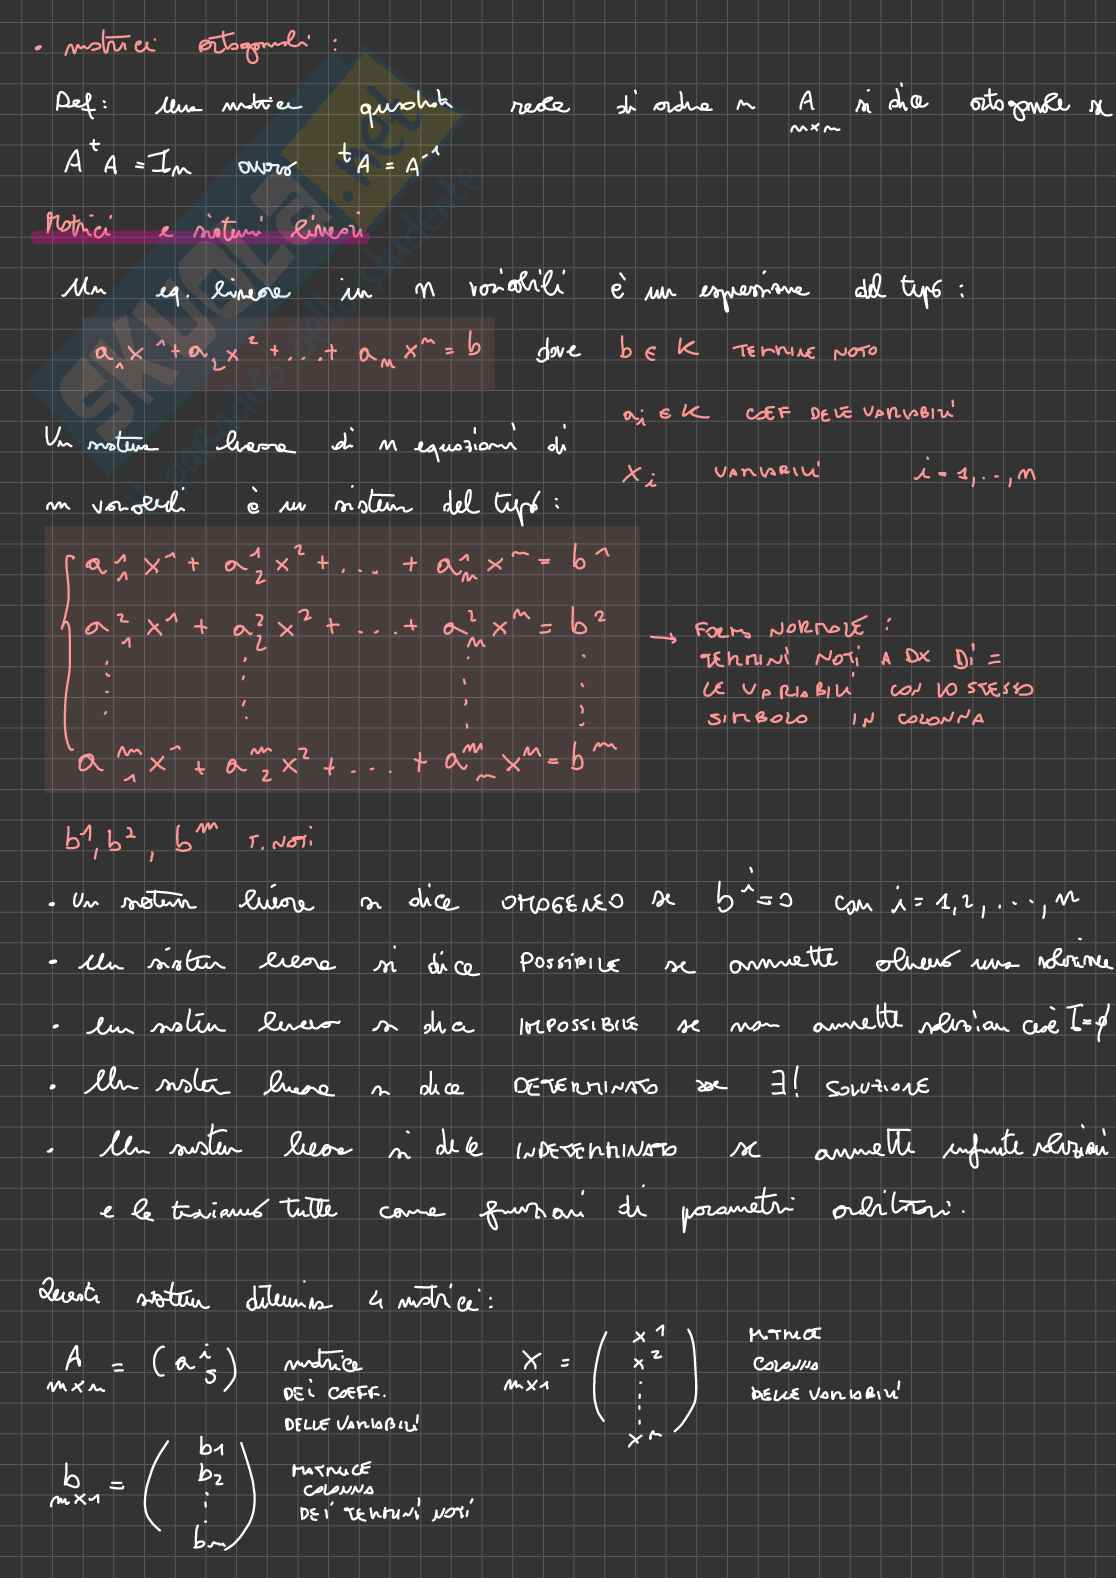 • matrici ortogonali :
Def: Una matrice quadrata reale di ordine n A si dice ortogonale se
n×n
A ᵗA = In ovvero ᵗA = A⁻¹
Matrici e sistemi lineari
Un eq. lineare in n variabili è un espressione del tipo :
a₁x¹ + a₂x² + ... + aₙxⁿ = b dove b ∈ K TERMINE NOTO
ai ∈ K COEF DELE VARIABILI
Un sistema lineare di m equazioni di
xi VARIABILI i = 1, .., n
n variabili è un sistema del tipo :
a¹₁ x¹ + a¹₂ x² + .... + a¹ₙ xⁿ = b¹
a²₁ x¹ + a²₂ x² + ... + a²ₙ xⁿ = b²
→ FORMA NORMALE :
TERMINI NOTI A DX DI =
LE VARIABILI CON LO STESSO
SIMBOLO IN COLONNA
aᵐ₁ x¹ + aᵐ₂ x² + .... + aᵐₙ xⁿ = bᵐ
b¹, b², bᵐ T. NOTI
• Un sistema lineare si dice OMOGENEO se bⁱ = 0 con i = 1, 2, ...., n
• Un sistema lineare si dice POSSIBILE se ammette almeno una soluzione
• un sistema lineare si dice IMPOSSIBILE se non ammette soluzioni cioè I = ∅
• Un sistema lineare si dice DETERMINATO se ∃! SOLUZIONE
• Un sistema lineare si dice INDETERMINATO se ammette infinite soluzioni
e le troviamo tutte come funzioni di parametri arbitrari.
Questi sistemi determina 4 matrici :
A = (aⁱⱼ) matrice
m×n
DEI COEFF.
DELLE VARIABILI
X = ( x¹ x² ⋮ xⁿ ) MATRICE
n×1
COLONNA
DELLE VARIABILI
b = ( b1 b2 ⋮ bm ) MATRICE
m×1
COLONNA
DEI TERMINI NOTI
SKUOLA.net